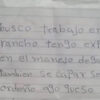 busco trabajo en
rancho tengo ex
en el manejo de
tambien se capar
ordeño ago queso